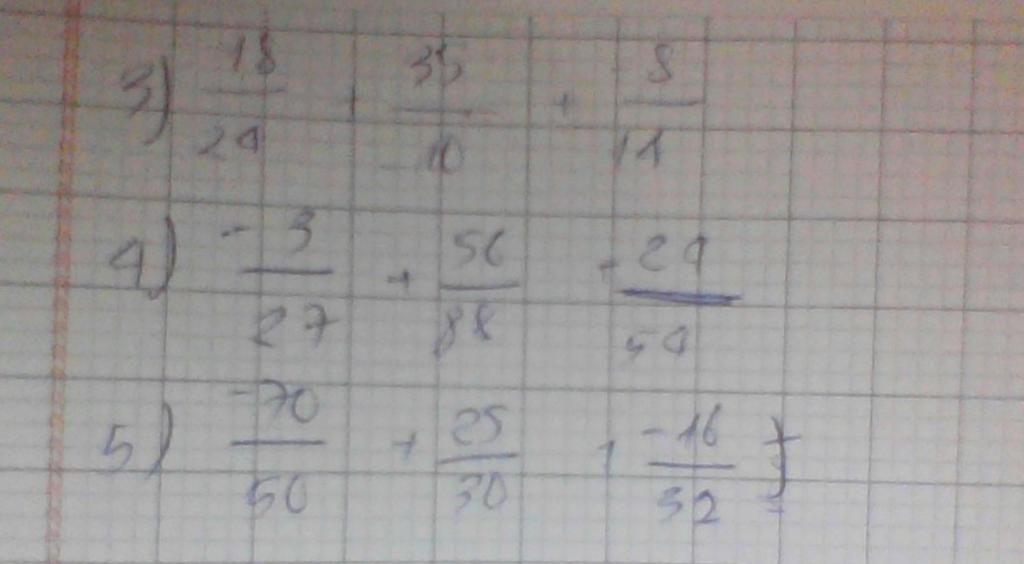 3) 18/24 + 35/10 + 8/11
4) -3/27 + 56/88 + 24/54
5) -70/50 + 25/30 + -16/32